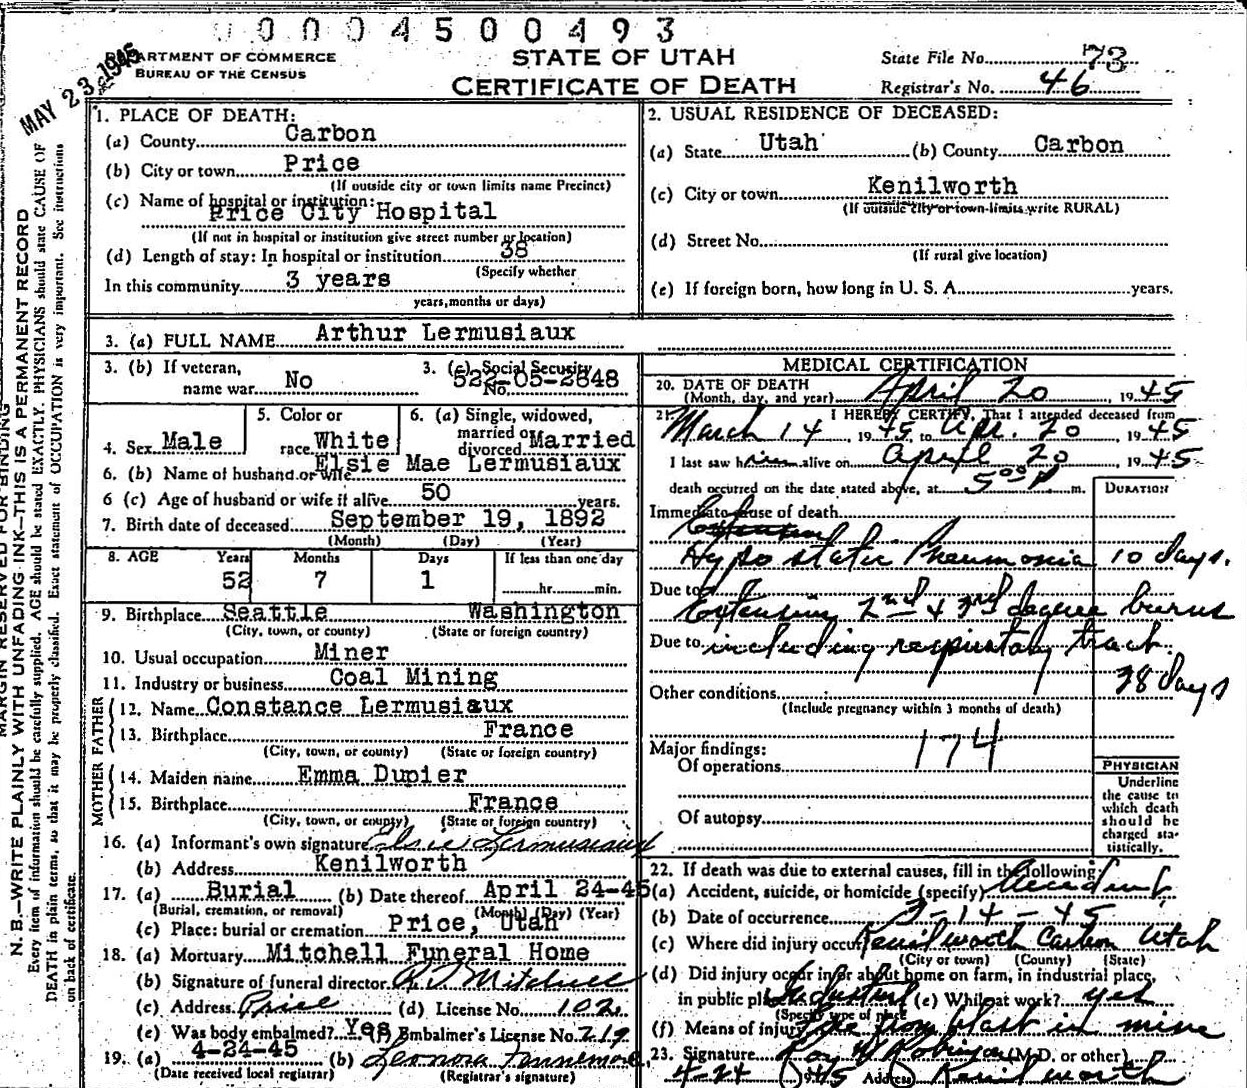 0004500493
MAY 23 1945
DEPARTMENT OF COMMERCE
BUREAU OF THE CENSUS
STATE OF UTAH
CERTIFICATE OF DEATH
State File No. 73
Registrar's No. 46
MARGIN RESERVED FOR BINDING
N. B.—WRITE PLAINLY WITH UNFADING INK—THIS IS A PERMANENT RECORD
Every item of information should be carefully supplied. AGE should be stated EXACTLY. PHYSICIANS should state CAUSE OF
DEATH in plain terms, so that it may be properly classified. Exact statement of OCCUPATION is very important. See instructions
on back of certificate.
1. PLACE OF DEATH:
(a) County Carbon
(b) City or town Price
(If outside city or town limits name Precinct)
(c) Name of hospital or institution:
Price City Hospital
(If not in hospital or institution give street number or location)
(d) Length of stay: In hospital or institution 38
(Specify whether
In this community 3 years
years, months or days)
2. USUAL RESIDENCE OF DECEASED:
(a) State Utah (b) County Carbon
(c) City or town Kenilworth
(If outside city or town limits write RURAL)
(d) Street No.
(If rural give location)
(e) If foreign born, how long in U. S. A. years.
3. (a) FULL NAME Arthur Lermusiaux
3. (b) If veteran, name war No
3. (c) Social Security No. 522-05-2848
4. Sex Male
5. Color or race White
6. (a) Single, widowed, married or divorced Married
6. (b) Name of husband or wife Elsie Mae Lermusiaux
6 (c) Age of husband or wife if alive 50 years.
7. Birth date of deceased September 19, 1892
(Month) (Day) (Year)
8. AGE Years Months Days If less than one day
52 7 1 hr. min.
9. Birthplace Seattle Washington
(City, town, or county) (State or foreign country)
10. Usual occupation Miner
11. Industry or business Coal Mining
FATHER
12. Name Constance Lermusiaux
13. Birthplace France
(City, town, or county) (State or foreign country)
MOTHER
14. Maiden name Emma Dupier
15. Birthplace France
(City, town, or county) (State or foreign country)
16. (a) Informant's own signature Elsie Lermusiaux
(b) Address Kenilworth
17. (a) Burial (b) Date thereof April 24-45
(Burial, cremation, or removal) (Month) (Day) (Year)
(c) Place: burial or cremation Price, Utah
18. (a) Mortuary Mitchell Funeral Home
(b) Signature of funeral director Mitchell
(c) Address Price (d) License No. 102
(e) Was body embalmed? Yes Embalmer's License No. 219
19. (a) 4-24-45 (b) Leonora Fannemore
(Date received local registrar) (Registrar's signature)
MEDICAL CERTIFICATION
20. DATE OF DEATH
(Month, day, and year) April 20, 1945
21. I HEREBY CERTIFY, That I attended deceased from
March 14, 1945, to Apr. 20, 1945
I last saw him alive on April 20 1945
death occurred on the date stated above, at 5:00 P m.
DURATION
Immediate cause of death
Hypostatic Pneumonia 10 days.
Due to Extensive 2nd & 3rd degree burns
Due to including respiratory track.
38 days
Other conditions
(Include pregnancy within 3 months of death)
174
Major findings:
Of operations
Of autopsy
PHYSICIAN
Underline
the cause to
which death
should be
charged sta-
tistically.
22. If death was due to external causes, fill in the following:
(a) Accident, suicide, or homicide (specify) Accident
(b) Date of occurrence 3-14-45
(c) Where did injury occur Kenilworth Carbon Utah
(City or town) (County) (State)
(d) Did injury occur in or about home on farm, in industrial place,
in public place Industrial (e) While at work? yes
(Specify type of place)
(f) Means of injury Fire from blast in mine
23. Signature Roy Robinson (M.D. or other)
4-24 1945 Address Kenilworth